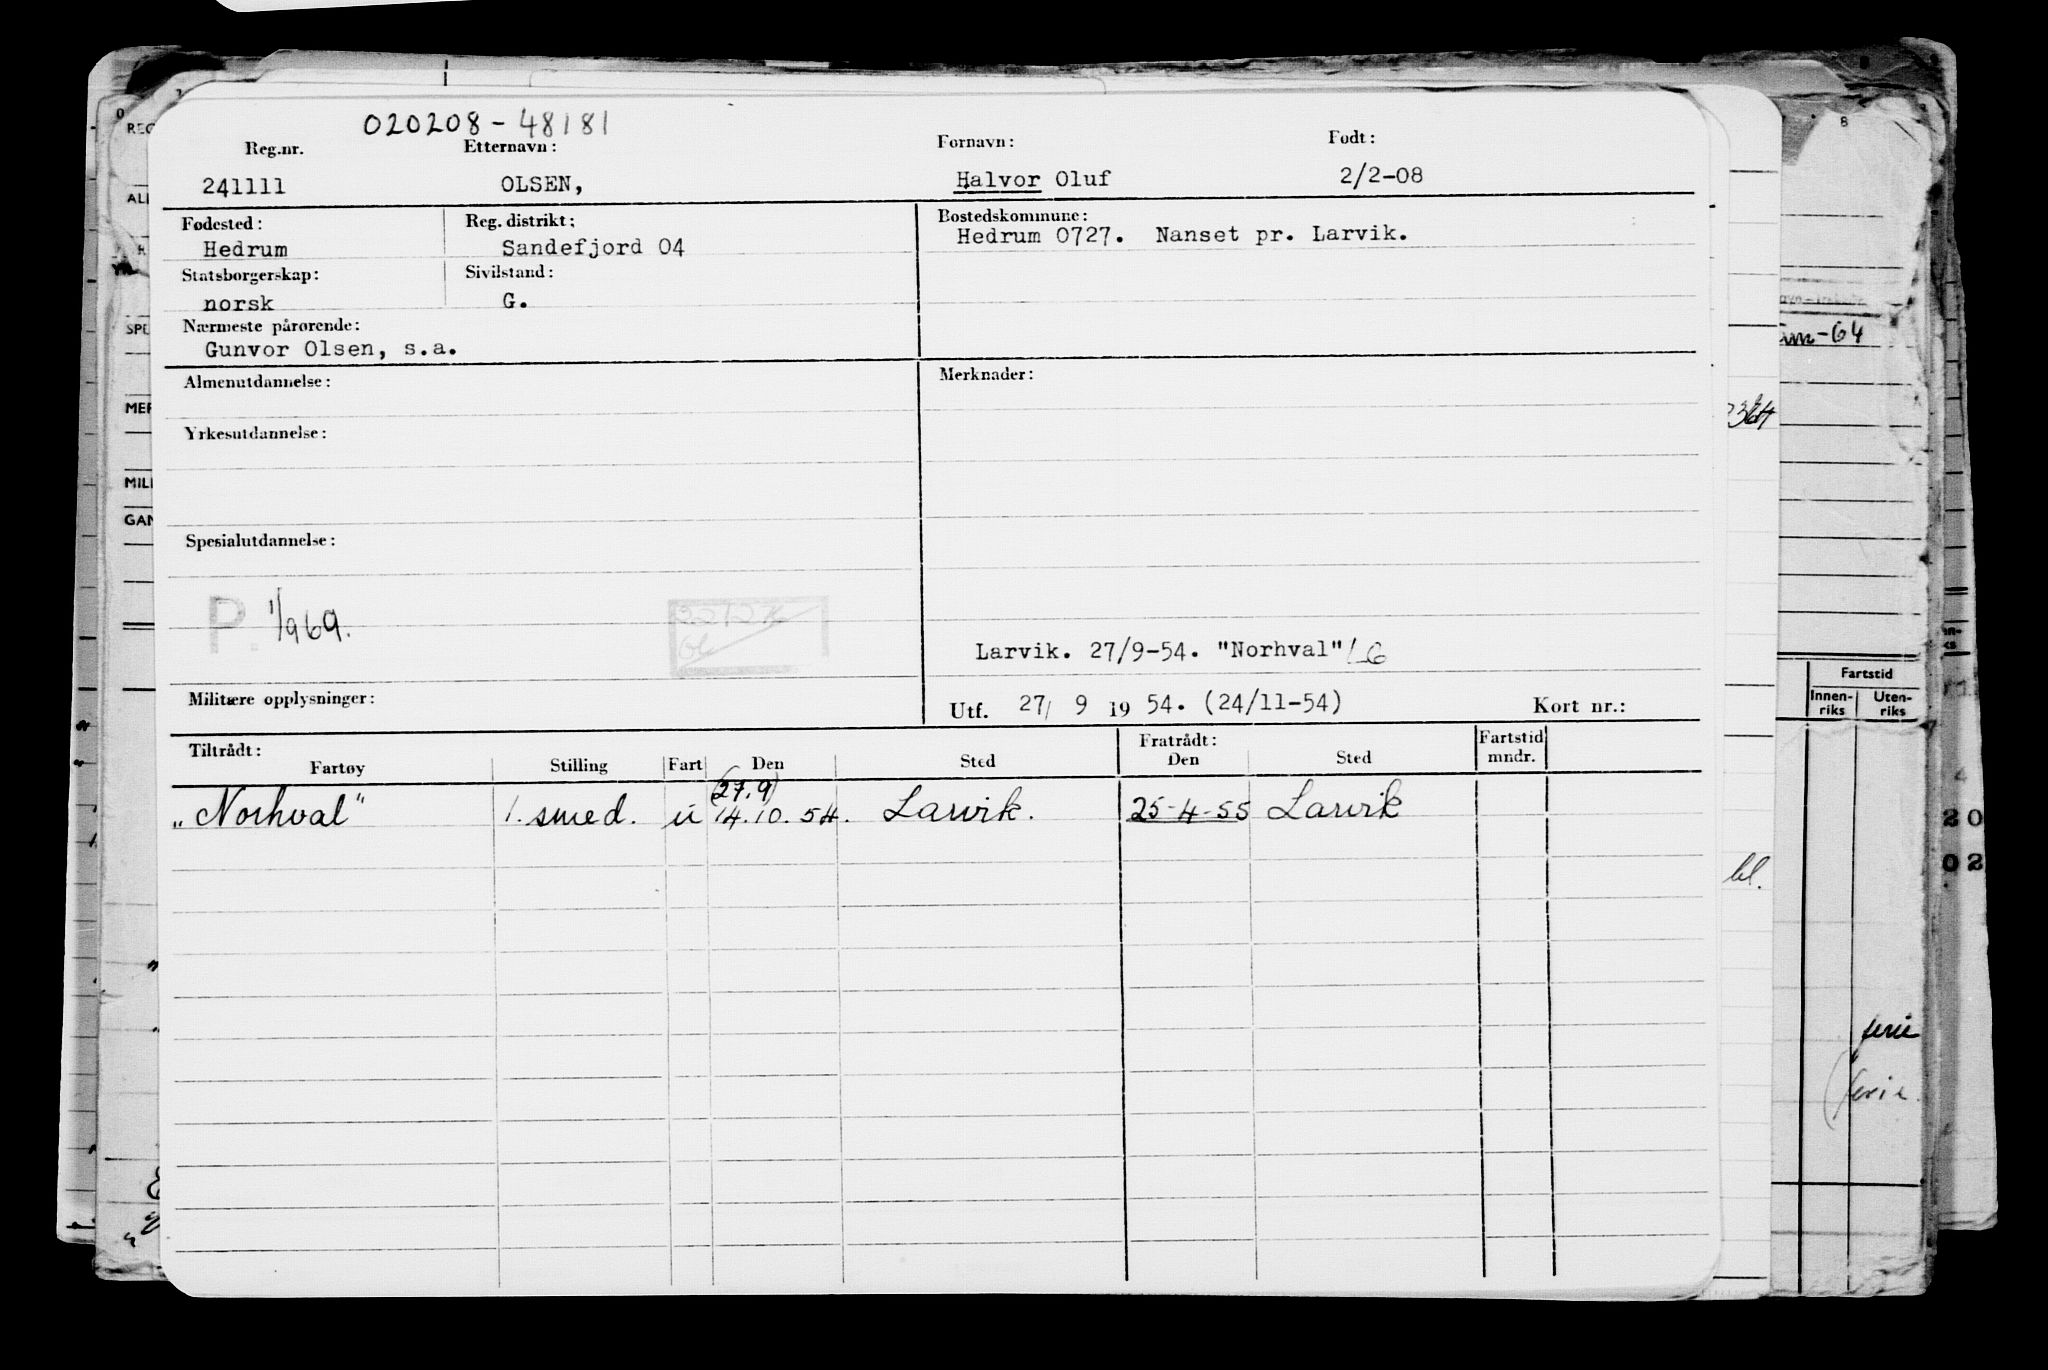 020208-48181
Reg.nr. Etternavn: Fornavn: Født:
241111 OLSEN, Halvor Oluf 2/2-08
Fødested: Reg. distrikt: Bostedskommune:
Hedrum Sandefjord 04 Hedrum 0727. Nanset pr. Larvik.
Statsborgerskap: Sivilstand:
norsk G.
Nærmeste pårørende:
Gunvor Olsen, s.a.
Almenutdannelse: Merknader:
Yrkesutdannelse:
Spesialutdannelse:
P. 1/969.
Larvik. 27/9-54. "Norhval" LG
Militære opplysninger:
Utf. 27/ 9 19 54. (24/11-54) Kort nr.:
Tiltrådt: Fratrådt: Fartstid
Fartøy Stilling Fart Den Sted Den Sted mndr.
(27.9)
„Norhval" 1. smed. u 14.10.54. Larvik. 25-4-55 Larvik
REG
ALL
SPE
MER
MILI
GAN
8
-64
Fartstid
Innen- Uten-
riks riks
bl.
20
02
ferie
ferie